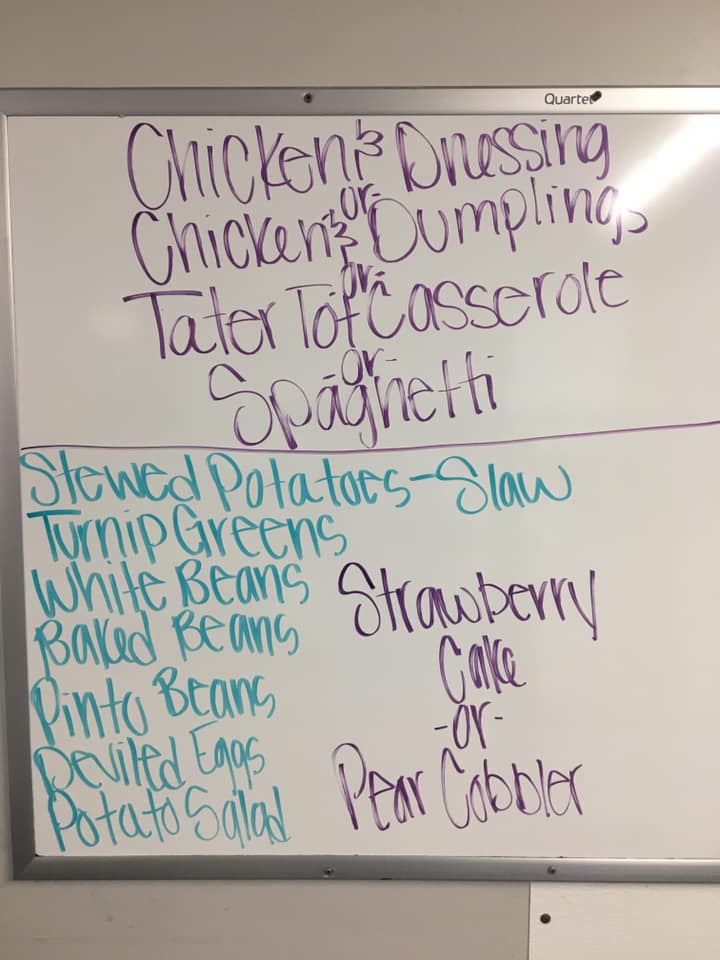 Quartet
Chicken & Dressing
-or-
Chicken & Dumplings
-or-
Tater Tot Casserole
-or-
Spaghetti
Stewed Potatoes-Slaw
Turnip Greens
White Beans
Baked Beans
Pinto Beans
Deviled Eggs
Potato Salad
Strawberry
Cake
-or-
Pear Cobbler